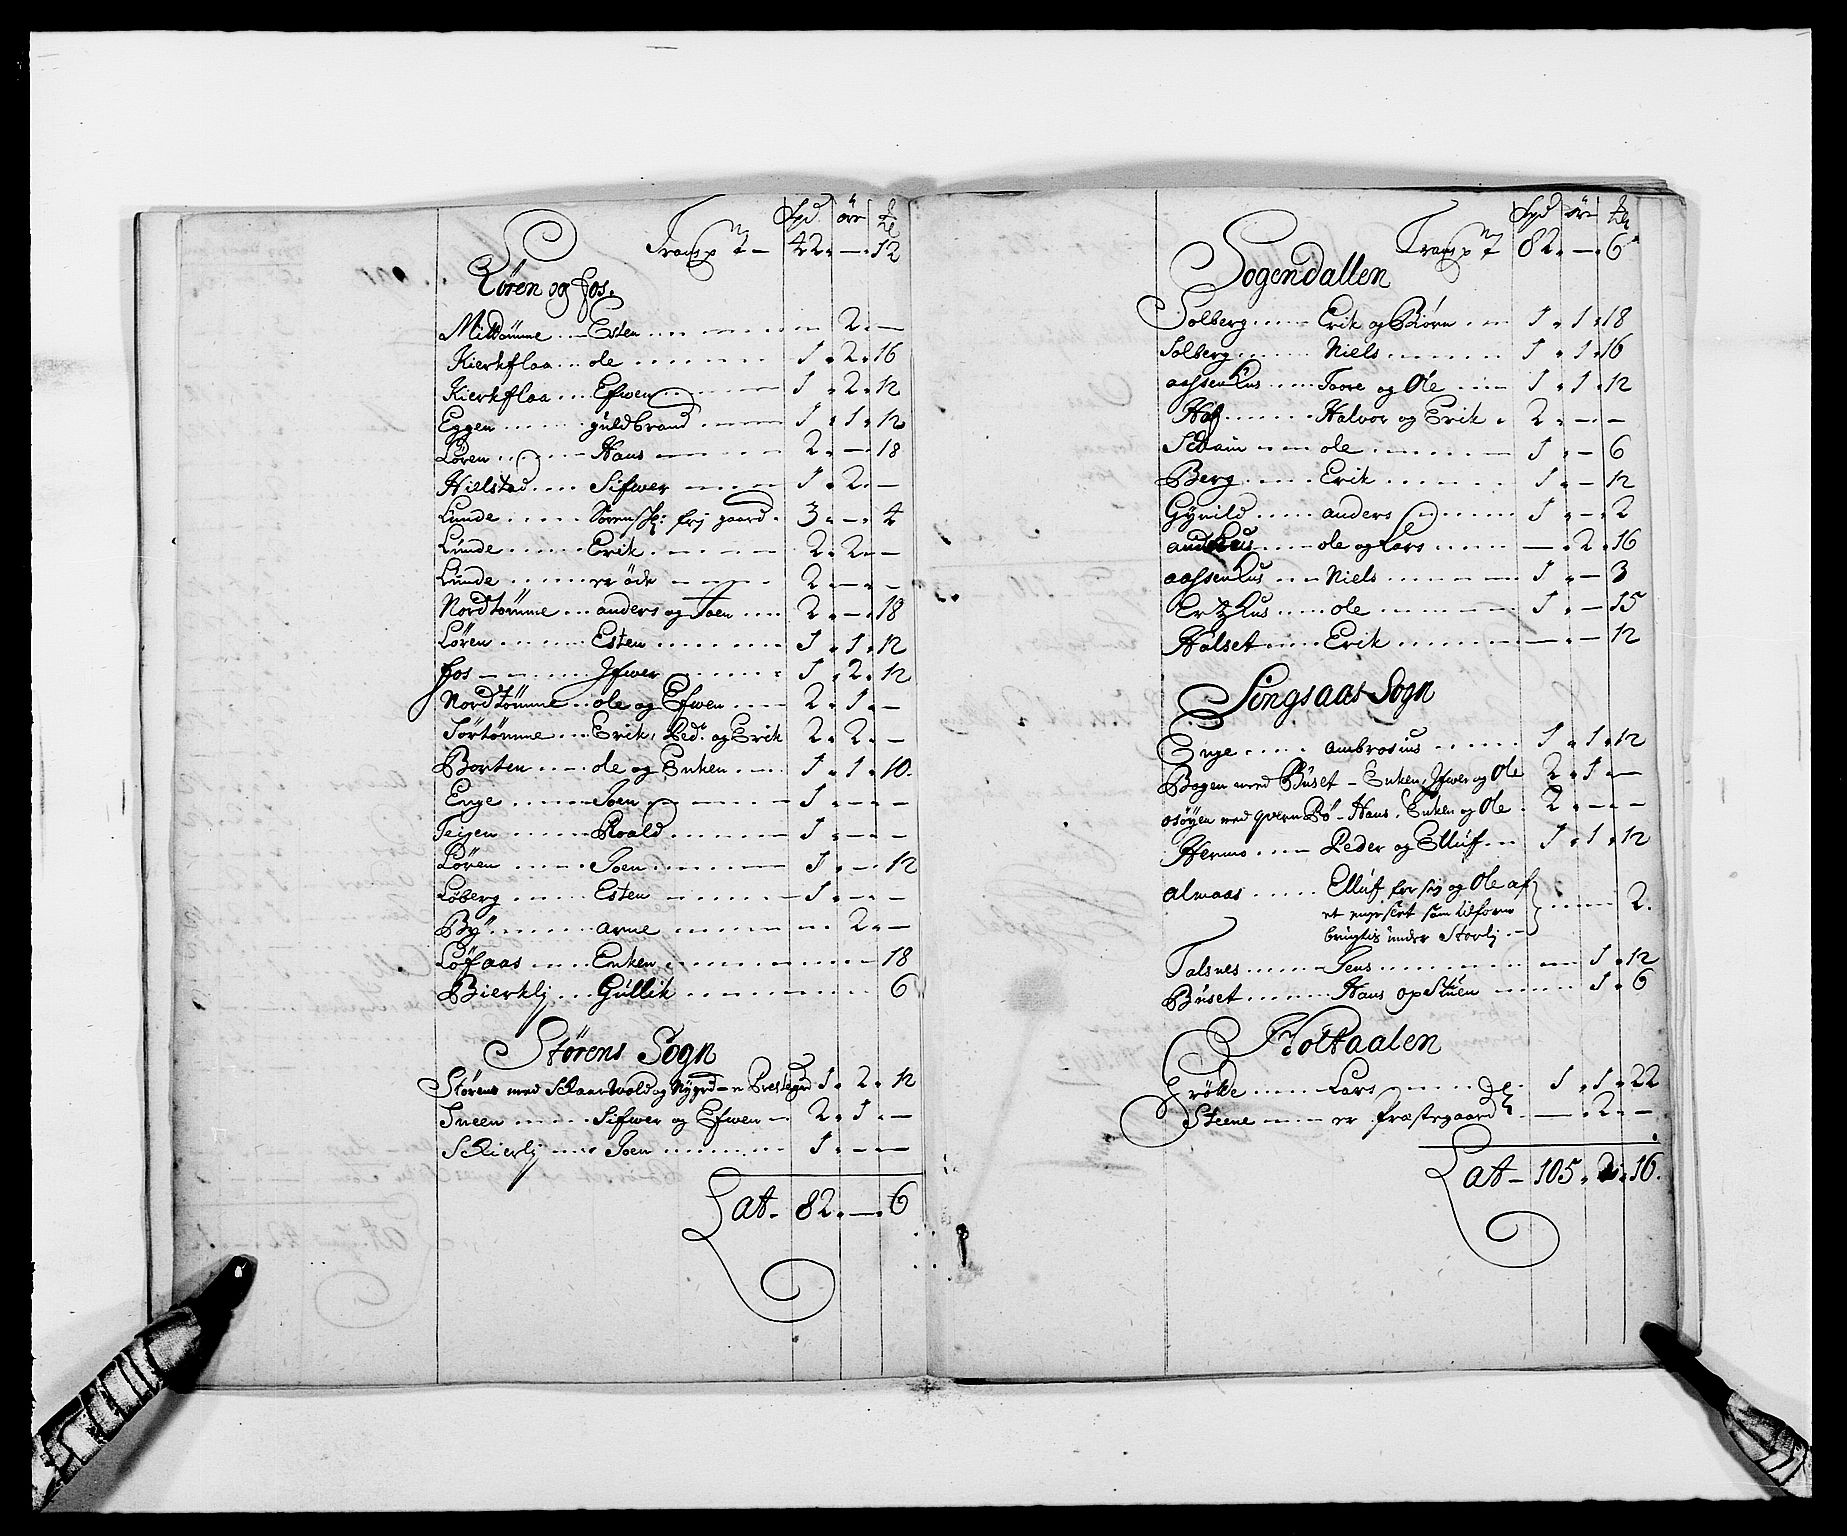 Spd øre ℔
Transpt – 42 – 12
Røren og fos.
Midtømme Esten 2 –
Kierkflaa ole 1 2 16
Kierkflaa Efwen 1 2 12
Eggen guldbrand 1 1 12
Løren Hans 2 – 18
Hielstad Sifwer 1 2 –
Lunde Søren frj gaard 3 – 4
Lunde Erik 2 2 –
Lunde er øde 2 – –
Nordtømme anders og Joen 2 – 18
Løren Esten 1 1 12
fos Ifwer 1 2 12
Nordtømme ole og Efwen 2 1 –
Sørtømme Erik, Ped: og Erik 2 2 –
Borten ole og Enken 1 1 10
Enge Joen 1 – –
Teigen Roald 1 – –
Løren Joen 1 – 12
Løberg Esten 1 – –
By arne 2 –
Løfaas Enken 18
Bierklj Gullik 6
Størens Sogn
Størens med Skaarwold og Nygrd – er Prestegrd 1 2 12
Sneen Sifwer og Efwen 2 1 –
Skierlj Joen 1 – –
Lat – 82 – 6
Spd øre ℔
Transpt 82 – 6
Sogendallen
Solberg Erik og Biørn 1 1 18
Solberg Niels 1 1 16
aassenhus Taare og Ole 1 1 12
Hof Halvor og Erik 2 – –
Skain ole 1 – 6
Berg Erik 1 – 12
Gynild anders 1 – 2
andhus ole og Lars – 2 16
aassenhus Niels 1 – 3
Ertzhus ole 1 – 15
Halset Erik – – 12
Singsaas Sogn
Enge ambrosius 1 1 12
Bogen med Buset – Enken, Ifwer og Ole 2 1 –
osøyen med qvernBø – Hans, Enken og Ole 2 – –
Hermo Peder og Elluf 1 1 12
almaas Elluf for sig og Ole af
et engeslet som tilforne
brugtis under Storlj 2
Talsnes Jens – 1 12
Buset Hans opstuen 1 6
Holtaalen
Grøtte Lars 1 1 22
Steene er præstegaard – 2 –
Lat – 105 2 16